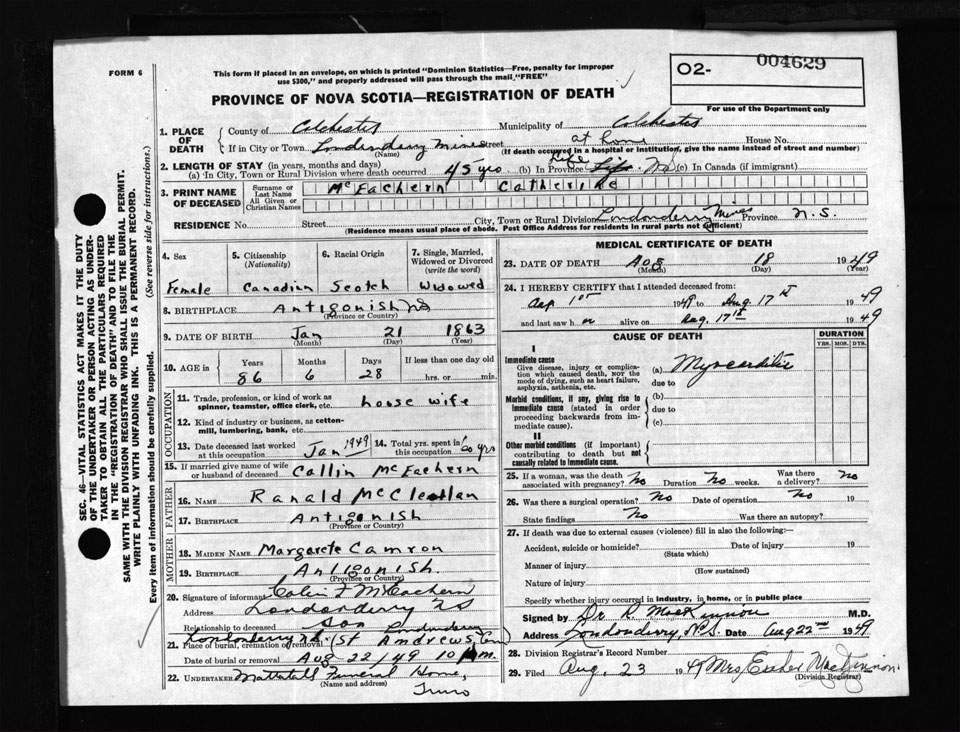 FORM 6
This form if placed in an envelope, on which is printed "Dominion Statistics—Free, penalty for improper
use $300," and properly addressed will pass through the mail "FREE"
PROVINCE OF NOVA SCOTIA—REGISTRATION OF DEATH
O2- 004629
For use of the Department only
SEC. 46—VITAL STATISTICS ACT MAKES IT THE DUTY
OF THE UNDERTAKER OR PERSON ACTING AS UNDER-
TAKER TO OBTAIN ALL THE PARTICULARS REQUIRED
IN THE "REGISTRATION OF DEATH" AND TO FILE THE
SAME WITH THE DIVISION REGISTRAR WHO SHALL ISSUE THE BURIAL PERMIT.
WRITE PLAINLY WITH UNFADING INK. THIS IS A PERMANENT RECORD.
Every item of information should be carefully supplied. (See reverse side for instructions.)
1. PLACE OF DEATH
County of Colchester Municipality of Colchester
If in City or Town Londonderry Mines Street at home House No.
(Name) (If death occurred in a hospital or institution, give the name instead of street and number)
2. LENGTH OF STAY (in years, months and days)
(a) In City, Town or Rural Division where death occurred 45 yrs (b) In Province Life (c) In Canada (if immigrant)
3. PRINT NAME OF DECEASED
Surname or Last Name McEachern Catherine
All Given or Christian Names
RESIDENCE No. Street City, Town or Rural Division Londonderry Mines Province N.S.
(Residence means usual place of abode. Post Office Address for residents in rural parts not sufficient)
4. Sex Female
5. Citizenship (Nationality) Canadian
6. Racial Origin Scotch
7. Single, Married, Widowed or Divorced (write the word) Widowed
8. BIRTHPLACE Antigonish NS
(Province or Country)
9. DATE OF BIRTH Jan 21 1863
(Month) (Day) (Year)
10. AGE in Years 86 Months 6 Days 28 If less than one day old hrs. or min.
OCCUPATION
11. Trade, profession, or kind of work as spinner, teamster, office clerk, etc. house wife
12. Kind of industry or business, as cotton-mill, lumbering, bank, etc.
13. Date deceased last worked at this occupation Jan 1949 14. Total yrs. spent in this occupation 60 yrs
15. If married give name of wife or husband of deceased Collin McEachern
FATHER
16. NAME Ranald McClellan
17. BIRTHPLACE Antigonish
(Province or Country)
MOTHER
18. MAIDEN NAME Margarete Camron
19. BIRTHPLACE Antigonish.
(Province or Country)
20. Signature of informant Colin F McEachern
Address Londonderry NS
Relationship to deceased Son
21. Place of burial, cremation or removal Londonderry St Andrews Cem
Date of burial or removal Aug 22/49 10 A.M.
22. UNDERTAKER Mattatall Funeral Home,
(Name and address) Truro
MEDICAL CERTIFICATE OF DEATH
23. DATE OF DEATH Aug 18 1949
(Month) (Day) (Year)
24. I HEREBY CERTIFY that I attended deceased from:
1st 1949 to Aug. 17th 1949
and last saw h er alive on Aug. 17th 1949
CAUSE OF DEATH DURATION
YRS. MOS. DYS.
I
Immediate cause
Give disease, injury or complication which caused death, not the mode of dying, such as heart failure, asphyxia, asthenia, etc.
(a) Myocarditis
due to
Morbid conditions, if any, giving rise to immediate cause (stated in order proceeding backwards from immediate cause).
(b)
due to
(c)
II
Other morbid conditions (if important) contributing to death but not causally related to immediate cause.
25. If a woman, was the death associated with pregnancy? No Duration No weeks. Was there a delivery? No
26. Was there a surgical operation? No Date of operation No 19
State findings No Was there an autopsy?
27. If death was due to external causes (violence) fill in also the following:—
Accident, suicide or homicide? Date of injury 19
(State which)
Manner of injury
(How sustained)
Nature of injury
Specify whether injury occurred in industry, in home, or in public place
Signed by Dr R. MacKinnon M.D.
Address Londonderry, N.S. Date Aug 22nd 1949
28. Division Registrar's Record Number
29. Filed Aug. 23 1949 Mrs Esther MacKinnon
(Division Registrar)